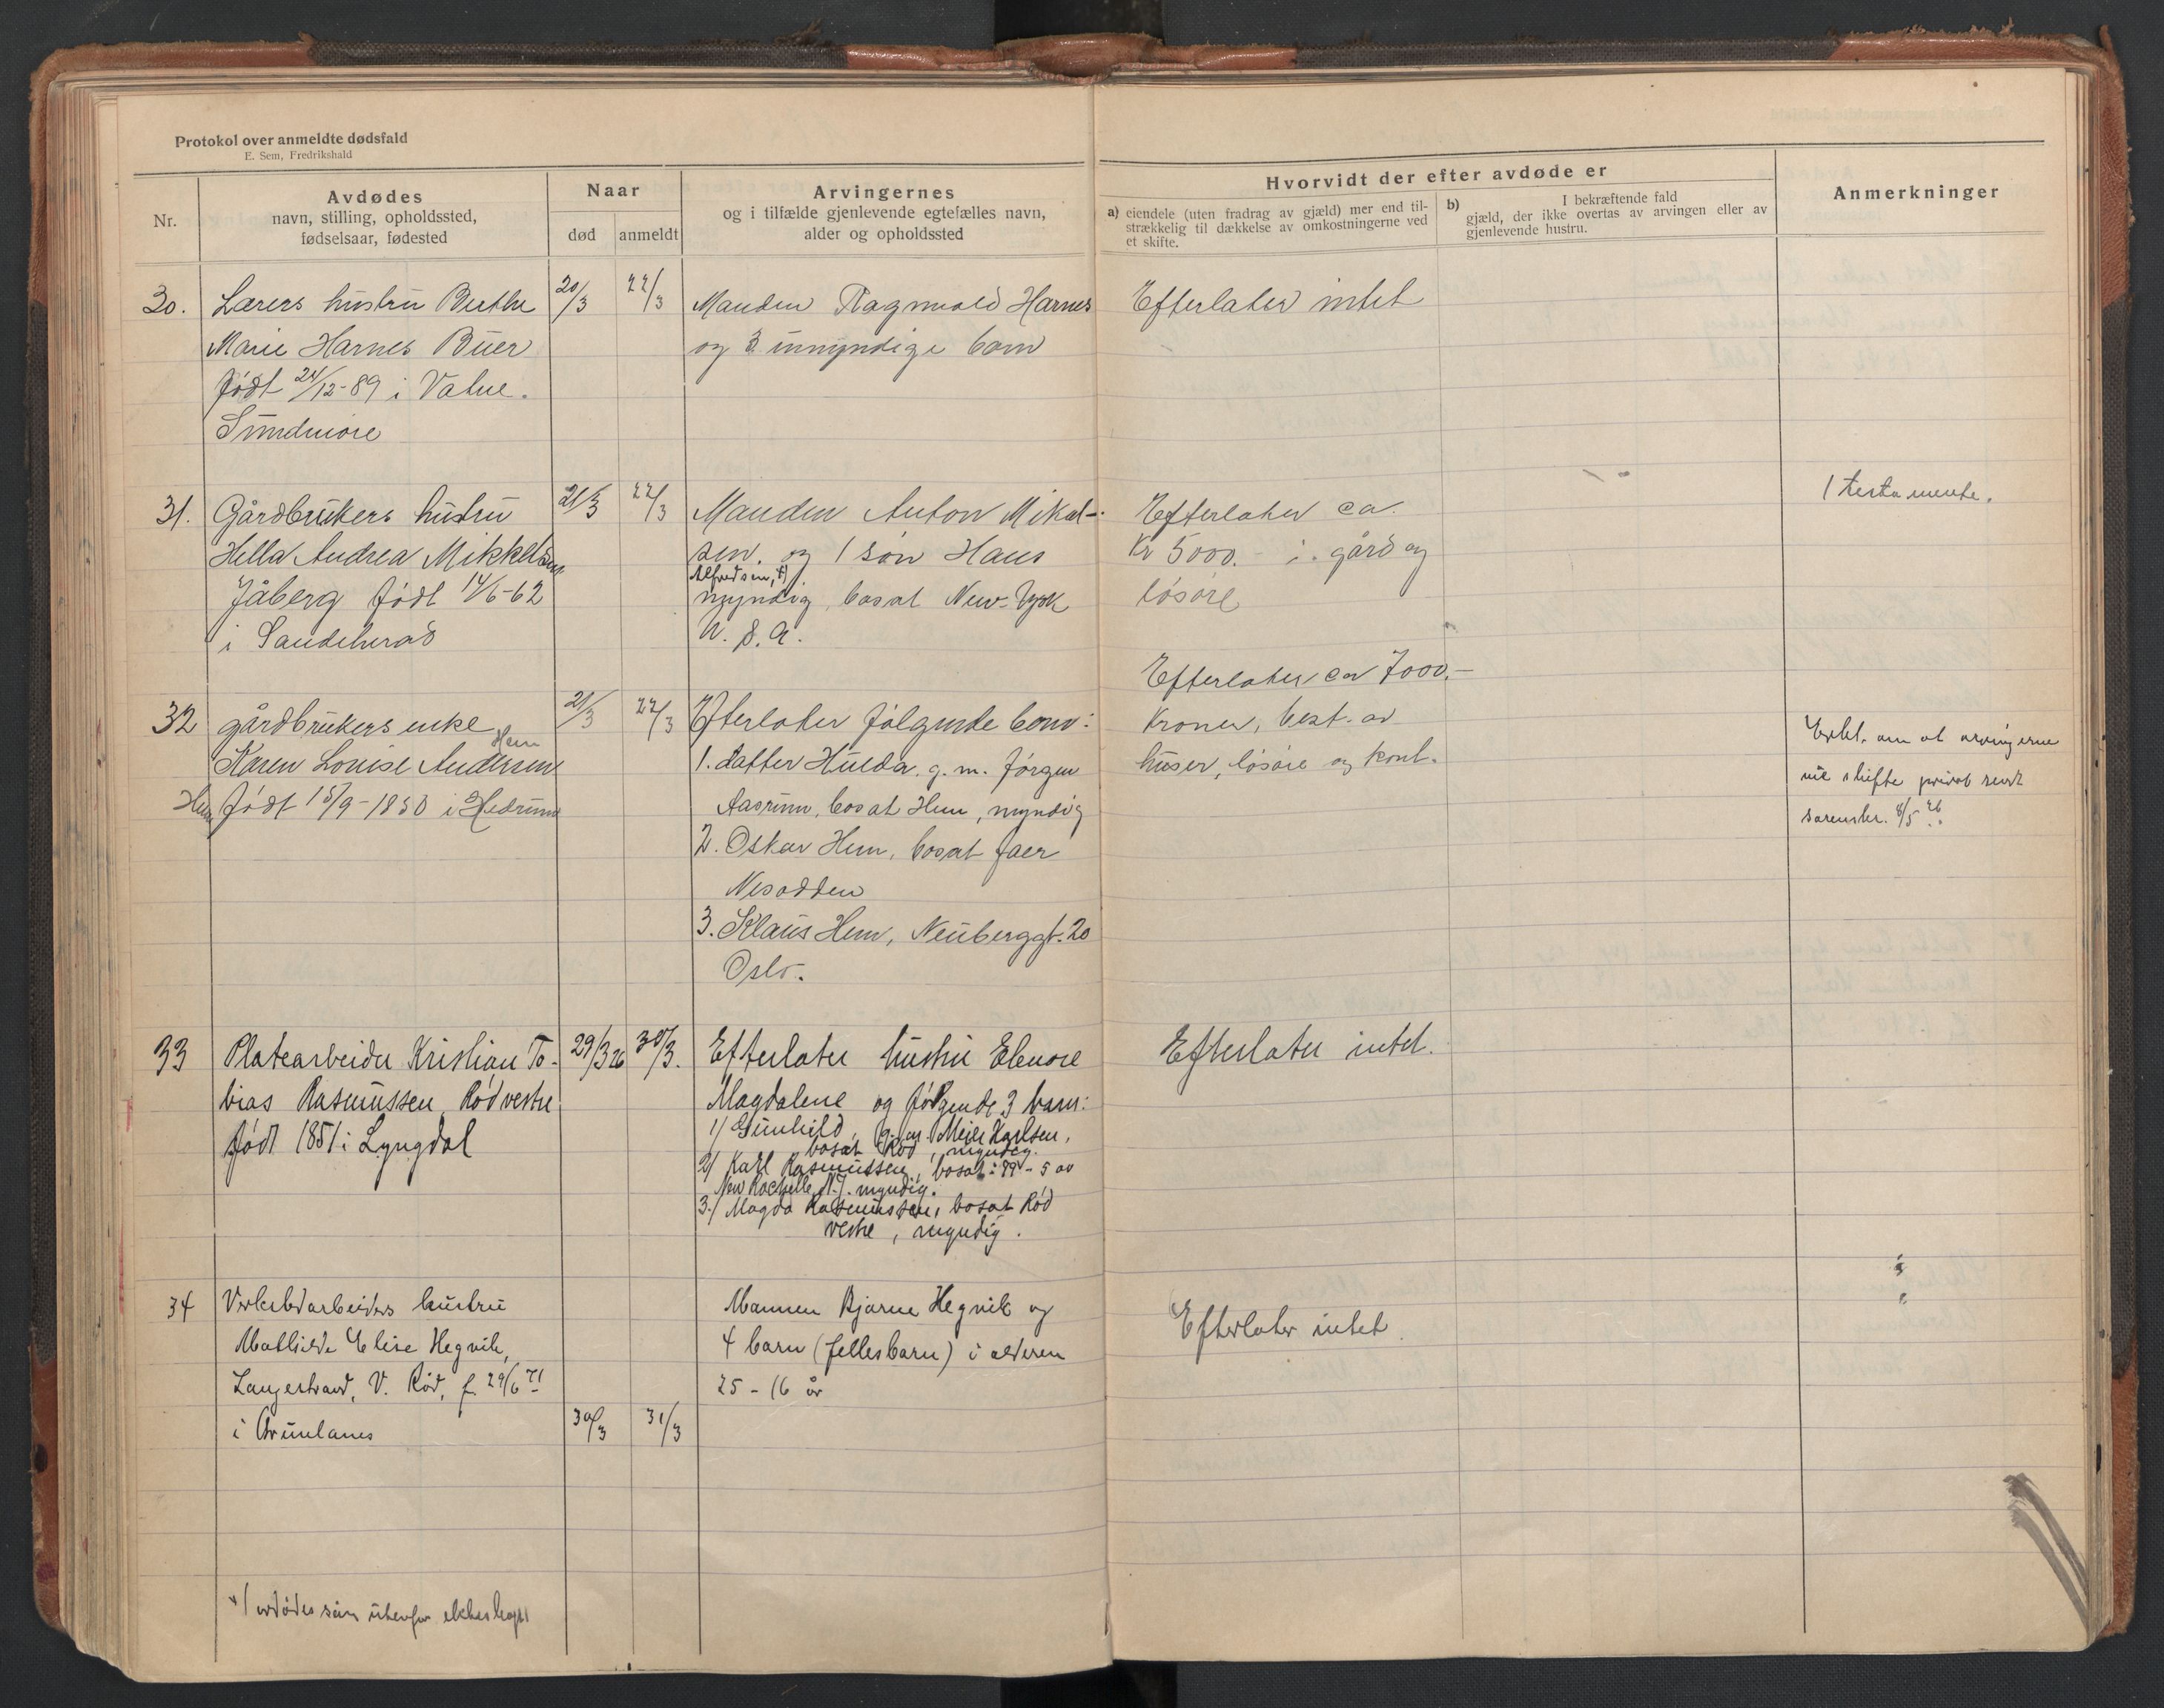 Protokol over anmeldte dødsfald
E. Sem, Fredrikshald
Nr.
Avdødes
navn, stilling, opholdssted,
fødselsaar, fødested
Naar
død
anmeldt
Arvingernes
og i tilfælde gjenlevende egtefælles navn,
alder og opholdssted
Hvorvidt der efter avdøde er
a) eiendele (uten fradrag av gjæld) mer end til-
strækkelig til dækkelse av omkostningerne ved
et skifte.
b) I bekræftende fald
gjæld, der ikke overtas av arvingen eller av
gjenlevende hustru.
Anmerkninger
30.
Lærers hustru Berthe
Marie Harnes Buer
født 24/12-89 i Vatne.
Sundmøre
20/3
22/3
Manden Ragnvald Harnes
og 3 umyndige barn
Efterlater intet
31.
Gårdbrukers hustru
Hella Andrea Mikkelsen
Jåberg født 14/6-62
i Sandeherad
21/3
22/3
Manden Anton Mikal-
sen og 1 søn Hans
Alfredsen, x)
myndig, bosat New-York
U. S. A.
Efterlater ca.
Kr 5000.- i gård og
løsøre
1 testamente.
32
gårdbrukers enke
Hem
Karen Louise Andersen
Hem født 15/9-1850 i Hedrum
21/3
22/3
Efterlater følgende barn:
1. datter Hulda g. m. Jørgen
Aasrum, bosat Hem, myndig
2. Oskar Hem, bosat Jaer
Nesodden
3. Klaus Hem, Neuberggt. 20
Oslo.
Efterlater ca 7000,-
Kroner, best. av
huser, løsøre og kont.
Erkl. om at arvingerne
vil skifte privat sendt
sorenskr. 8/5 26.
33
Platearbeider Kristian To-
bias Rasmussen, Rød vestre
født 1851 i Lyngdal
29/3 26
30/3.
Efterlater hustru Elenore
Magdalene og følgende 3 barn:
1/ Gunhild, g. m. Meier Karlsen,
bosat Rød, myndig.
2/ Karl Rasmussen, bosat: 99 - 5 av
New Rochelle, N.J. myndig.
3./ Magda Rasmussen, bosat Rød
vestre, myndig.
Efterlater intet.
34
Verkstedarbeiders hustru
Mathilde Elise Hegvik,
Langestrand, V. Rød, f. 29/6 71
i Brunlanes
30/3
31/3
Mannen Bjarne Hegvik og
4 barn (fellesbarn) i alderen
25 - 16 år
Efterlater intet.
x/ avdødes søn utenfor ekteskapet